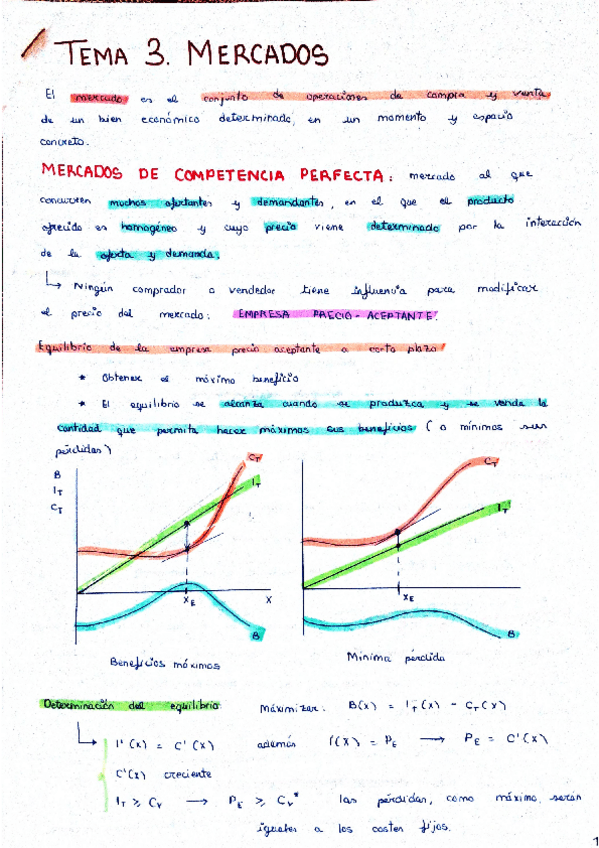 TEMA 3. MERCADOS
El mercado es el conjunto de operaciones de compra y venta
de un bien económico determinado, en un momento y espacio
concreto.
MERCADOS DE COMPETENCIA PERFECTA: mercado al que
concurren muchos ofertantes y demandantes, en el que el producto
ofrecido es homogéneo y cuyo precio viene determinado por la interacción
de la oferta y demanda.
↳ Ningún comprador o vendedor tiene influencia para modificar
el precio del mercado: EMPRESA PRECIO-ACEPTANTE.
Equilibrio de la empresa precio aceptante a corto plazo
* Obtener el máximo beneficio
* El equilibrio se alcanza cuando se produzca y se venda la
cantidad que permita hacer máximos sus beneficios (o mínimas sus
pérdidas)
B
IT
CT
CT
IT
XE
X
B
CT
IT
XE
B
Beneficios máximos
Mínima pérdida
Determinación del equilibrio maximizar: B(x) = IT(x) - CT(x)
↳ I'(x) = C'(x) además I'(x) = PE → PE = C'(x)
C'(x) creciente
IT ≥ CV → PE ≥ CV* las pérdidas, como máximo, serán
iguales a los costes fijos.
1